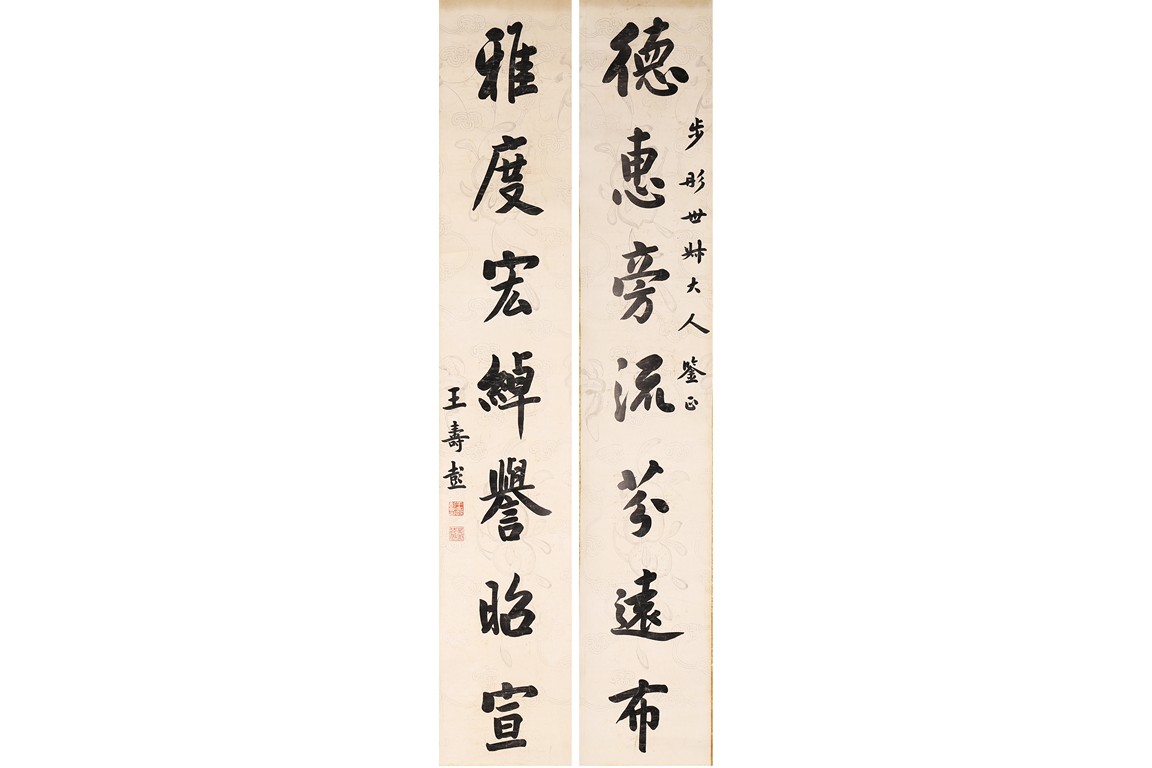 步彤世姊大人鉴正
德惠旁流芬遠布
雅度宏綽譽昭宣
王壽彭